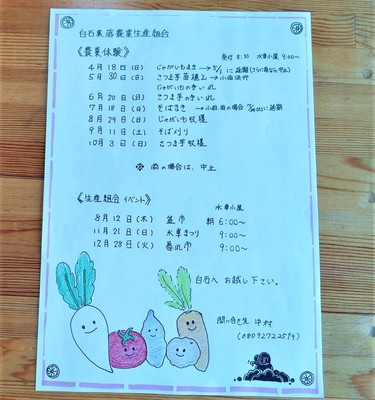 白石集落農業生産組合
《農業体験》 受付 8:30 水車小屋 9:00〜
4月18日(日) じゃがいもまき
5月30日(日) さつま芋苗植え →小雨決行
じゃがいもの手入れ
6月20日(日) さつま芋の手入れ
7月18日(日) そばまき →小雨
8月29日(日) じゃがいも収穫
9月11日(土) そば刈り
10月3日(日) さつま芋収穫
※ 雨の場合は、中止
《生産組合イベント》 水車小屋
8月12日(木) 盆市 朝 6:00〜
11月21日(日) 水車まつり 9:00〜
12月28日(火) 暮れ市 9:00〜
白石へ お越し下さい。
問い合せ先 中村
(08092722594)